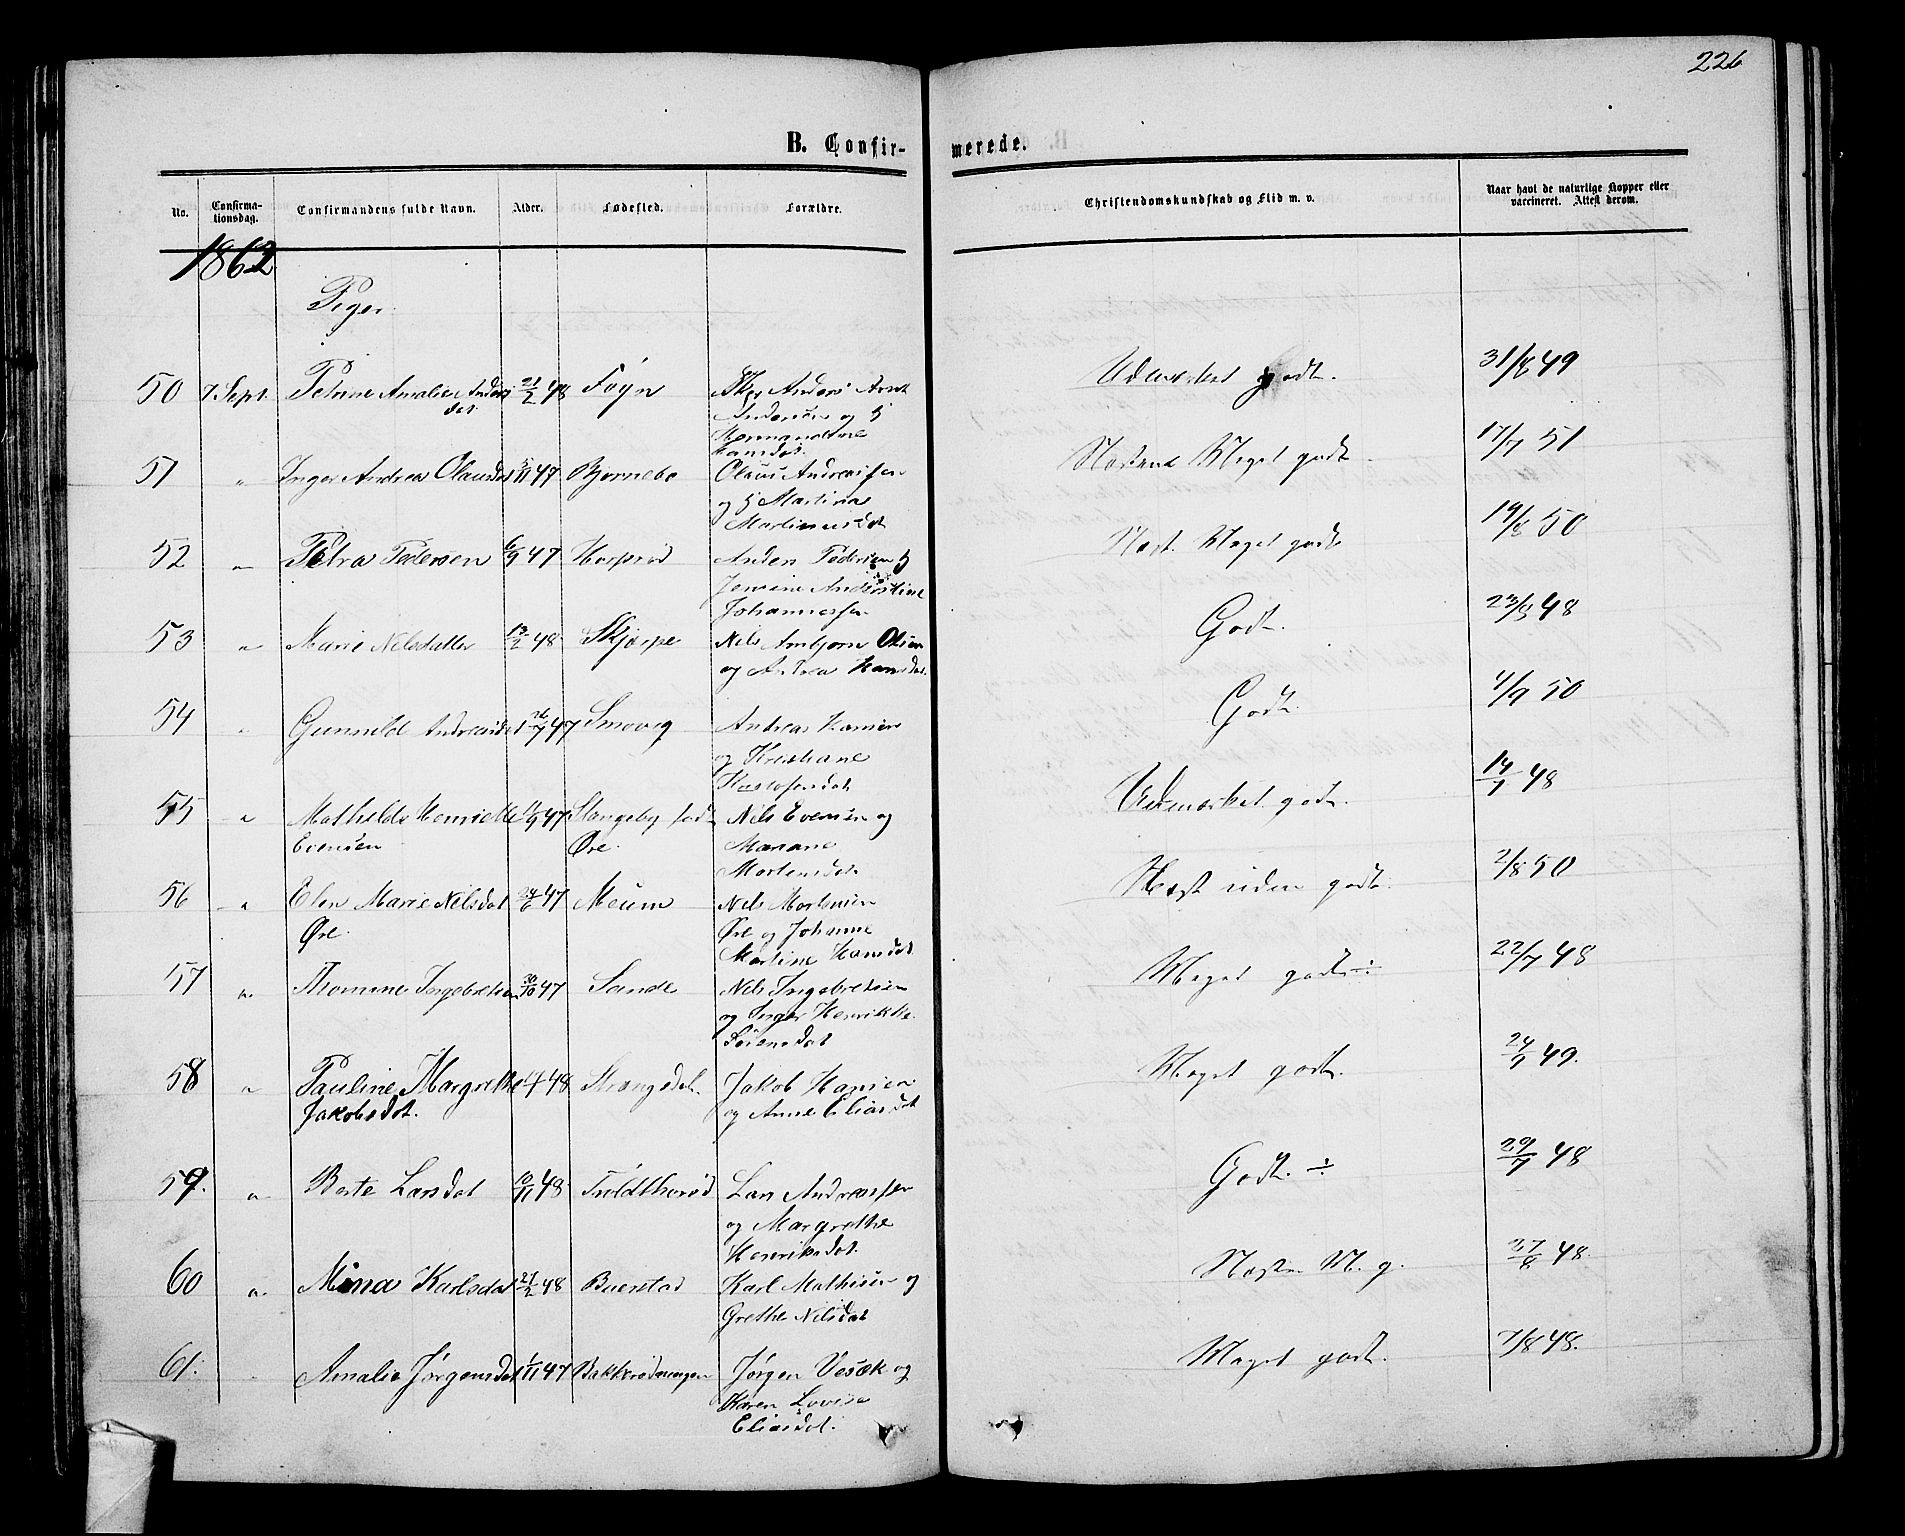 226
B. Confir- merede.
No. Confirma-tionsdag. Confirmandens fulde Navn. Alder. Fødested. Forældre. Christendomskundskab og Flid m. v. Naar havt de naturlige Kopper eller vaccineret. Attest derom.
1862
Piger.
50 7 Sept. Petrine Amalie Anders 21/2 48 Føyn Anders Arnt Udmærket godt. 31/8 49
dat Andersen og
Hermandine
Hansdat.
51 " Inger Andrea Olausdat 5/11 47 Bjørnebo Olaus Andreassen Næsten Meget godt 17/7 51
og Martine
Martinusdat
52 " Petra Pedersen 6/9 47 Horprød Anders Pedersen Næst. Meget godt 19/8 50
Jensine Anderstine
Johannessen
53 " Marie Nilsdatter 13/2 48 Skjærpe Nils Ambjørn Olsen Godt. 23/8 48
og Andrea Hansdat.
54 " Gunnild Andreasdat 26/7 47 Smovig Andreas Hansen Godt. 4/9 50
og Kristiane
Kristofersdat
55 " Mathilde Henriette 11/9 47 Stangeby fød Nils Evensen og Udmærket godt. 14/7 48
Evensen Øre. Mariane
Mortensdat.
56 " Elen Marie Nilsdat 24/6 47 Meum Nils Mortensen Mægt uden godt 2/8 50
Øre. Øre og Johanne
Martine Hansdat.
57 " Thomine Ingebretsen 30/10 47 Sande Nils Ingebretsen Meget godt ÷ 22/7 48
og Inger Henrikke
Sørensdat
58 " Pauline Margrethe 1/4 48 Strangsdal. Jakob Hansen Meget godt. 24/9 49.
Jakobsdat. og Anne Eliasdat
59. " Berte Larsdat 10/11 48 Tvildtherød Lars Andreassen Godt. ÷ 29/7 48
og Margrethe
Henriksdat.
60 " Mina Karlsdat 21/2 48 Buerstad Karl Mathisen og Næsten M. g. 27/8 48.
Grethe Nilsdat
61. " Amalie Jørgensdat 1/11 47 Bakkerødmengen Jørgen Vesæk og Meget godt. 7/8 48.
Karen Lovise
Eliasdat.